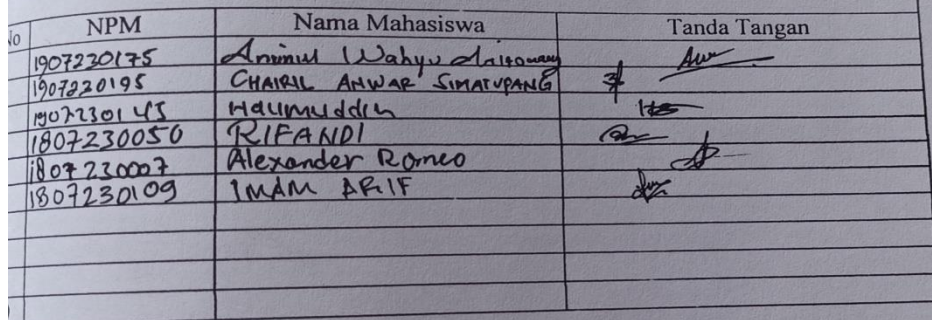 No NPM Nama Mahasiswa Tanda Tangan
1907230175 Wahyu
1907220195 CHAIRIL ANWAR SIMATUPANG
1907230145 Halimuddin
1807230050 RIFANDI
1807230007 Alexander Romeo
1807230109 IMAM ARIF